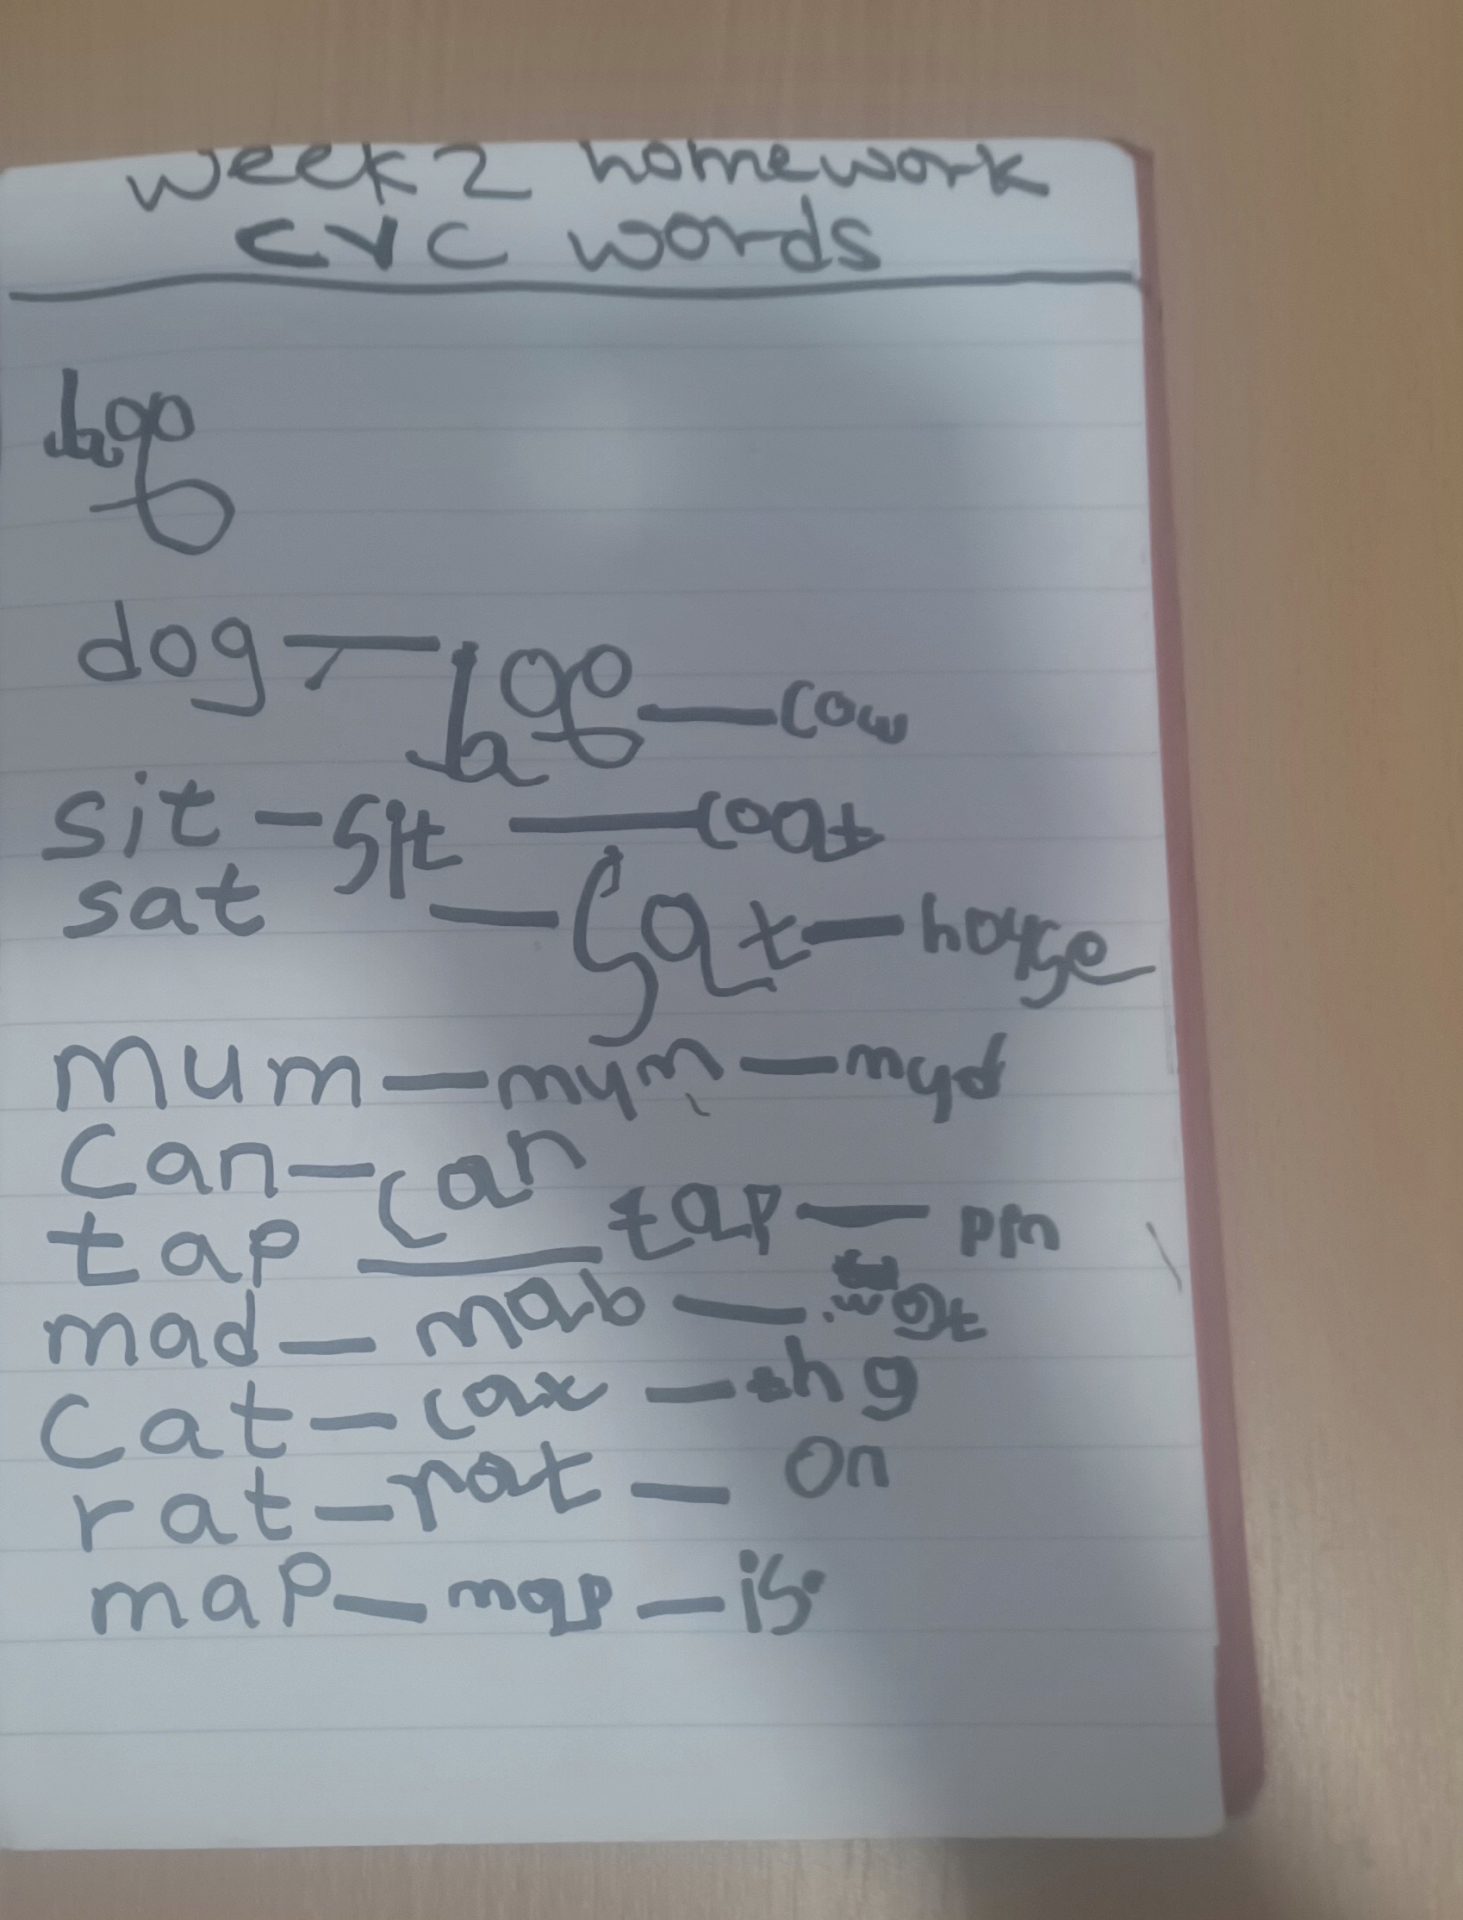 week 2 homework
CVC words
dog — — cow
sit — sit — coat
sat — sat — hoyse
mum — mym — myd
can — can
tap — tap — pin
mad — mab — wot
cat — cax — hg
rat — rat — on
map — map — is